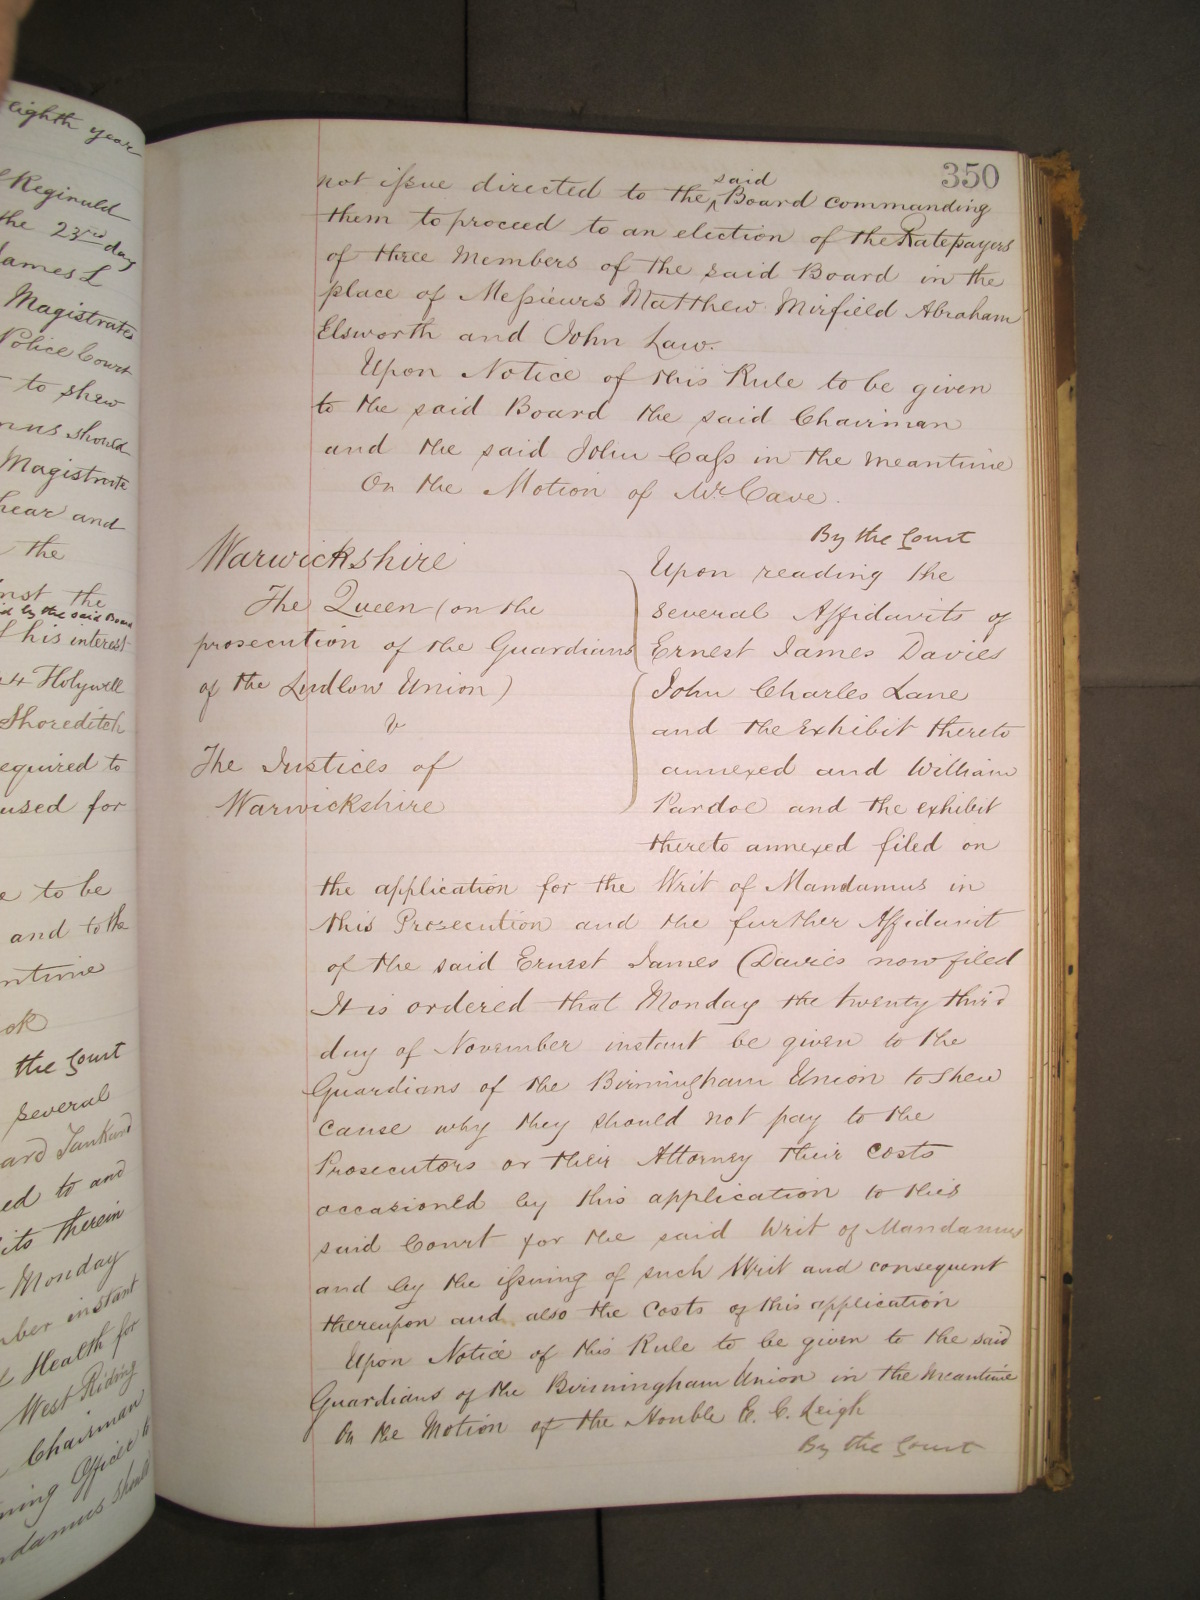 eighth year
Reginald
the 23rd day
James L
Magistrate
Police Court
to shew
should
Magistrate
hear and
the
the
by the said Board
his interest
Holywell
Shoreditch
required to
used for
to be
and to the
the Court
several
to and
therein
Monday
instant
Health for
West Riding
Chairman
Officer to
should
350
not issue directed to the said Board commanding
them to proceed to an election of the Ratepayers
of three Members of the said Board in the
place of Messieurs Matthew Mirfield Abraham
Elsworth and John Law.
Upon Notice of this Rule to be given
to the said Board the said Chairman
and the said John Cass in the meantime
On the Motion of Mr. Cave.
By the Court
Warwickshire
The Queen (on the
prosecution of the Guardians
of the Ludlow Union)
v
The Justices of
Warwickshire
Upon reading the
several Affidavits of
Ernest James Davies
John Charles Lane
and the Exhibit thereto
annexed and William
Pardoe and the exhibit
thereto annexed filed on
the application for the Writ of Mandamus in
this Prosecution and the further Affidavit
of the said Ernest James Davies now filed
It is ordered that Monday the twenty third
day of November instant be given to the
Guardians of the Birmingham Union to shew
cause why they should not pay to the
Prosecutors or their Attorney their costs
occasioned by this application to this
said Court for the said Writ of Mandamus
and by the issuing of such Writ and consequent
thereupon and also the Costs of this application
Upon Notice of this Rule to be given to the said
Guardians of the Birmingham Union in the meantime
On the Motion of the Honble E. C. Leigh
By the Court